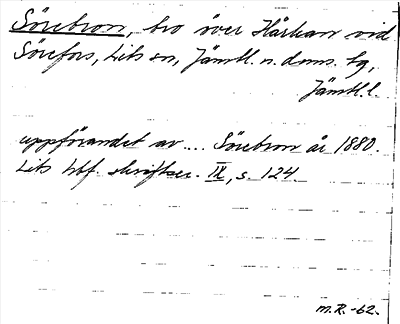 Sörebron, bro över Hårkan vid
Sörefors, Lits sn, Jämtl. n. doms. tg,
Jämtl. l.
uppförandet av .... Sörebron år 1880.
Lits hbf. skriftser. IX, s. 124.
M.R. -62.